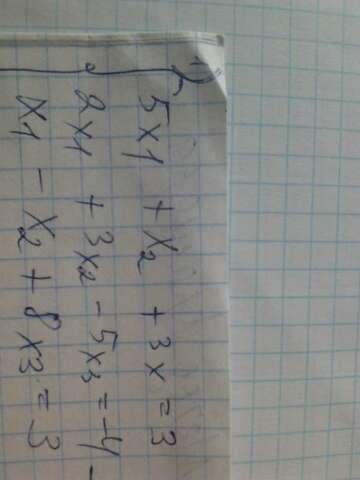 1)
5x1 + x2 + 3x = 3
2x1 + 3x2 - 5x3 = -4
x1 - x2 + 8x3 = 3